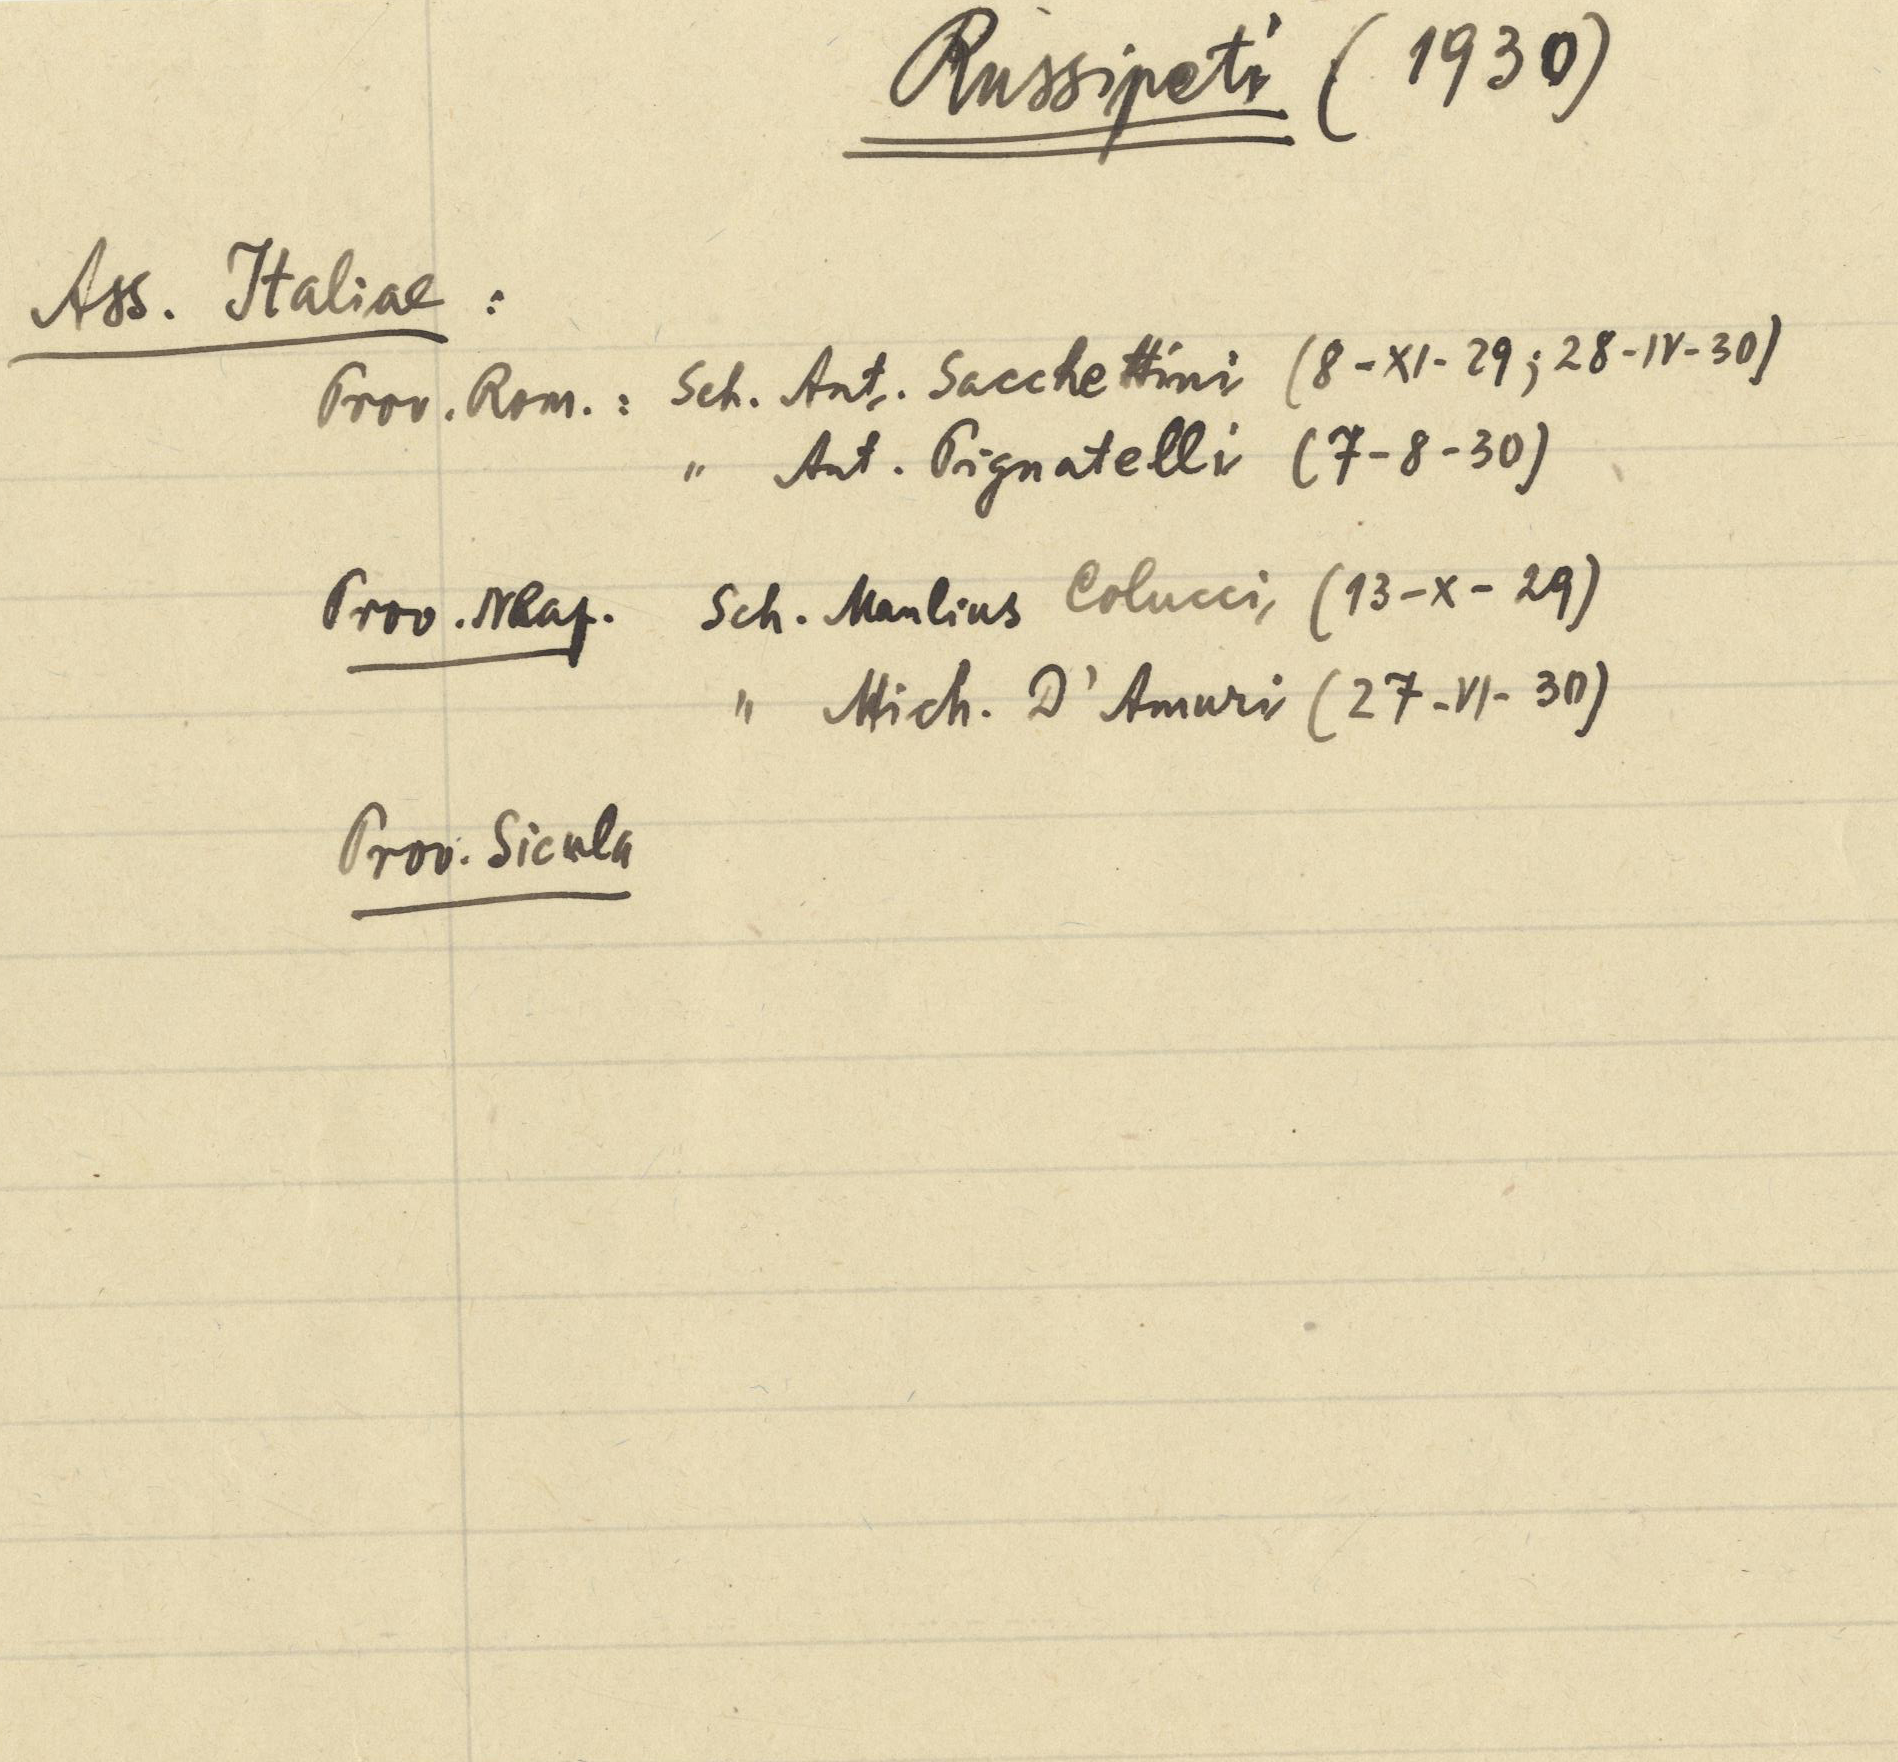 Russipeti (1930)
Ass. Italiae :
Prov. Rom. : Sch. Ant. Sacchettini (8-XI-29; 28-IV-30)
" Ant. Pignatelli (7-8-30)
Prov. Neap. Sch. Manlius Colucci, (13-X-29)
" Mich. D'Amuri (27-VI-30)
Prov. Sicula